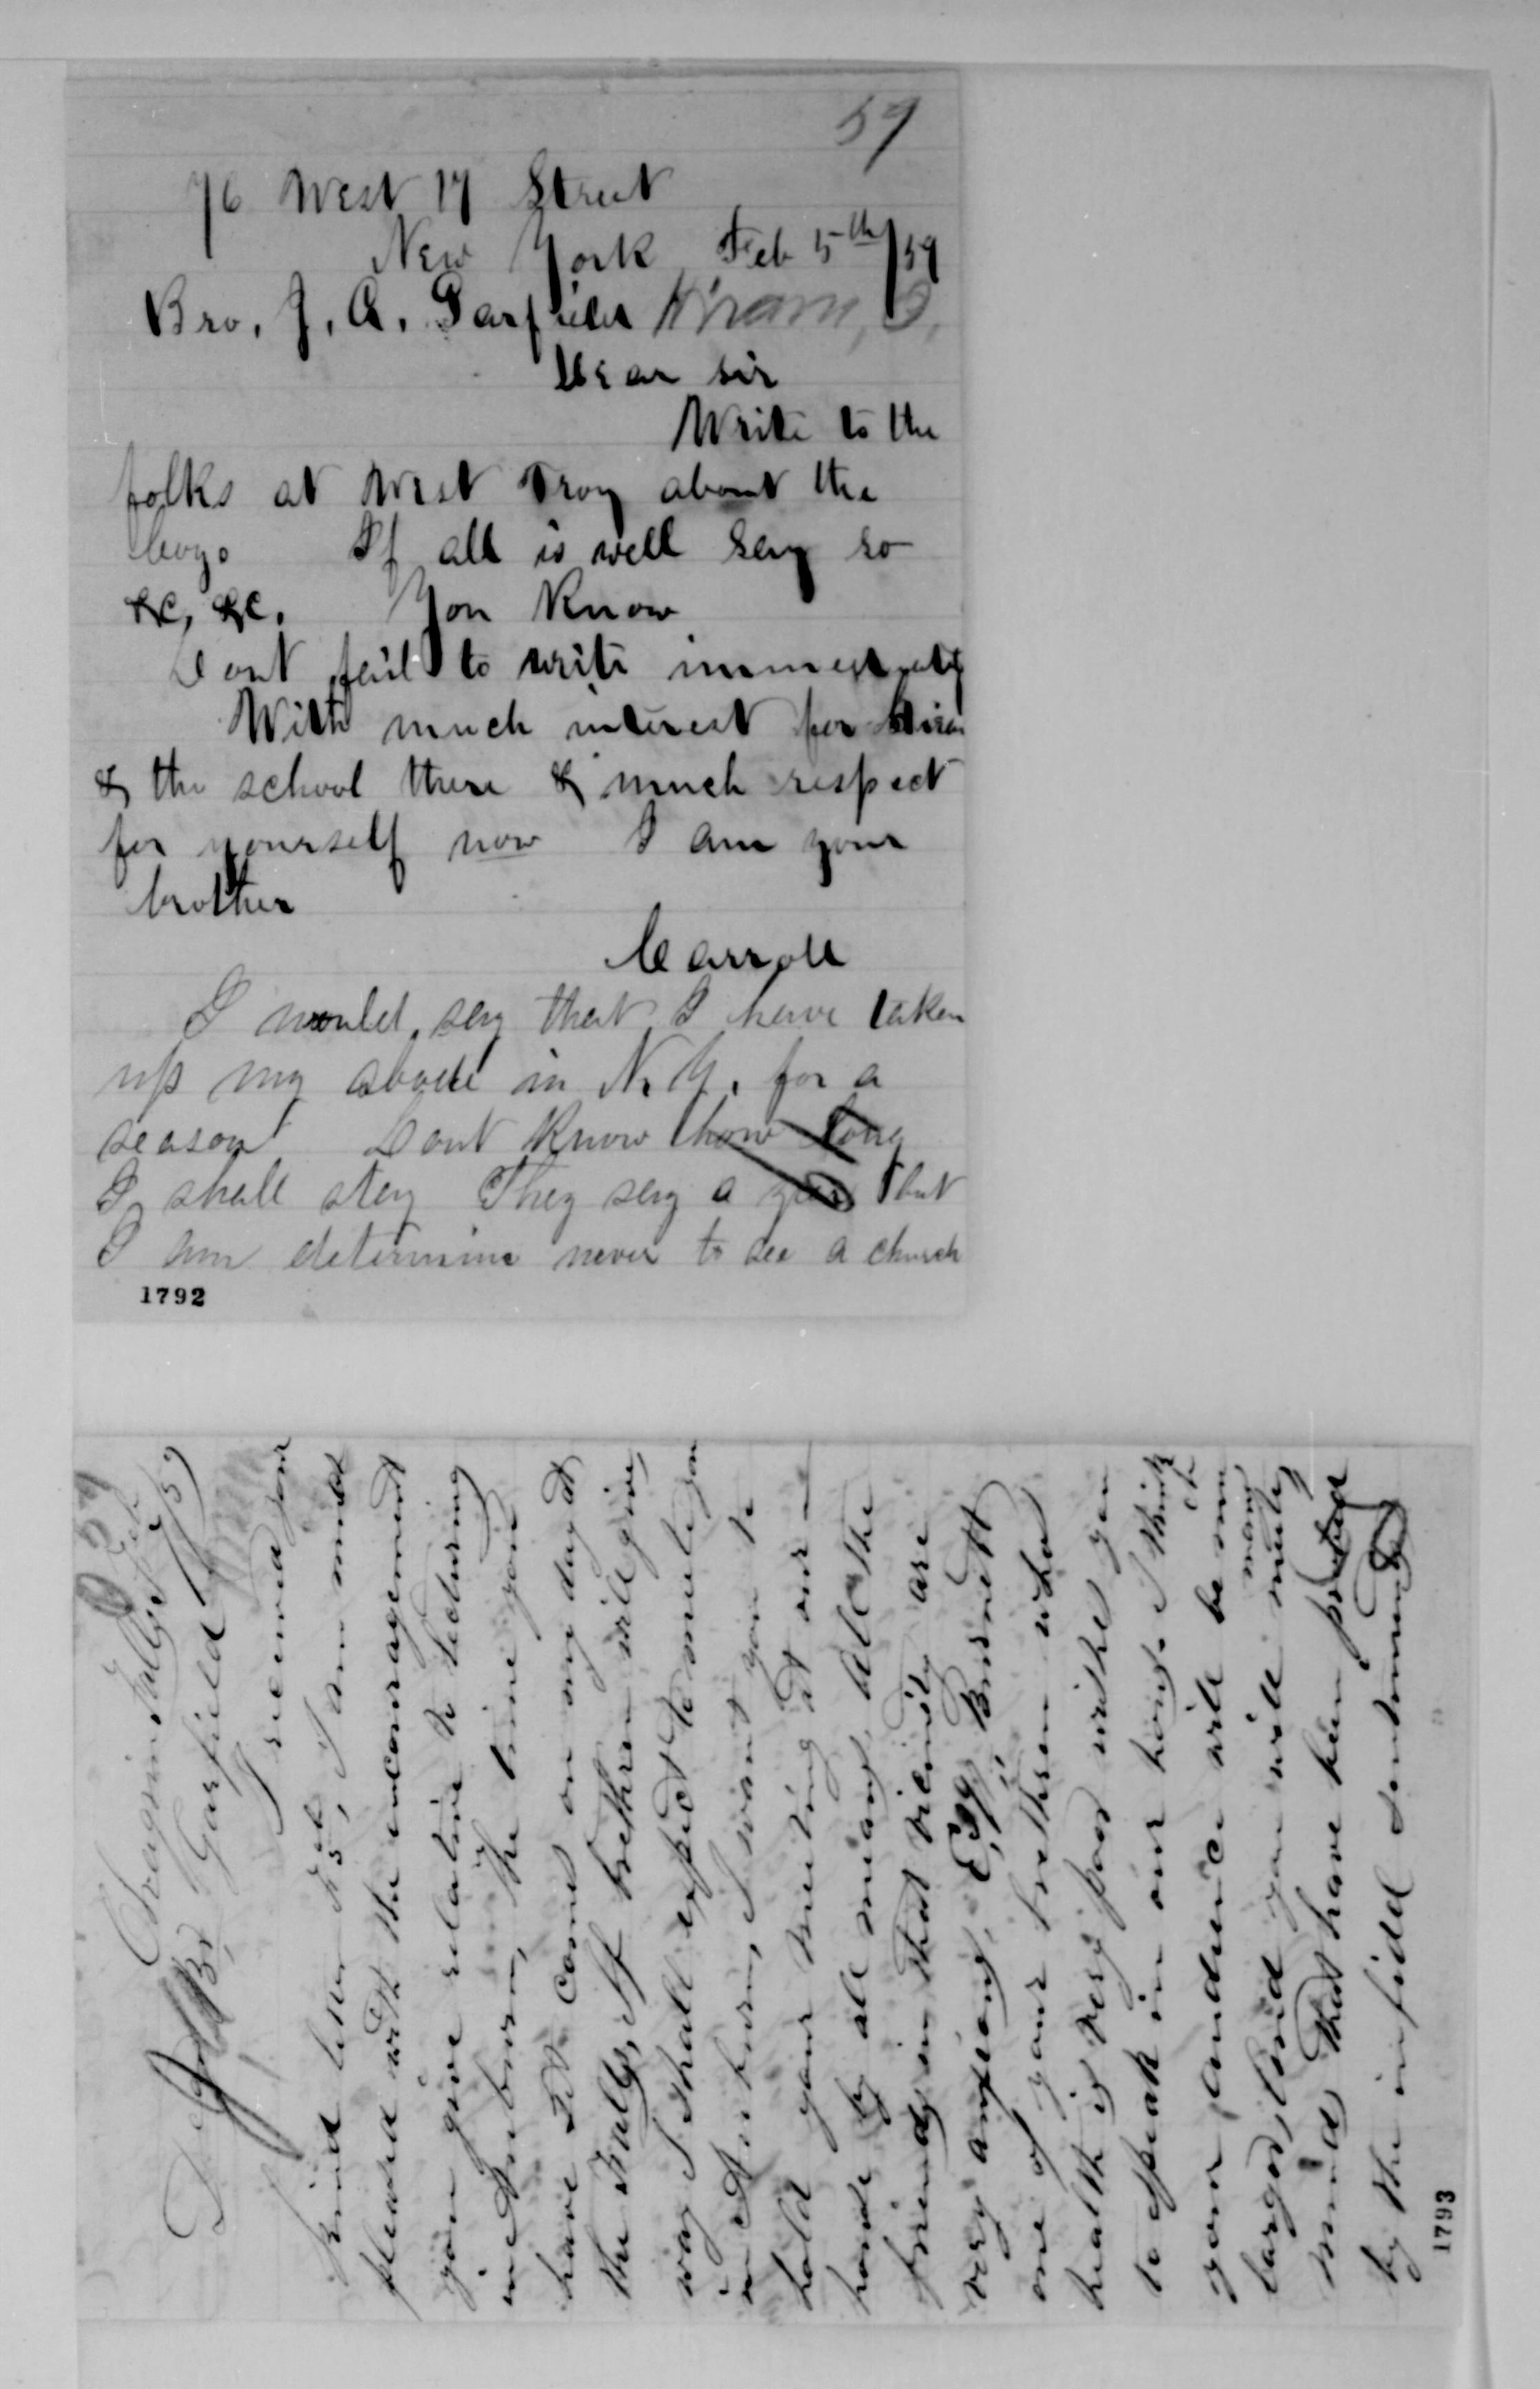 59
76 West 17 Street
New York Feb 5th/59
Bro. J. A. Garfield Hiram, O,
Dear sir
Write to the
folks at West Troy about the
boys If all is well say so
&c, &c. You Know
Dont fail to write immediately
With much interest for Hiram
& the school there & much respect
for yourself now I am your
brother
Carroll
I would say that I have taken
up my abode in N. Y. for a
season Dont Know how long
I shall stay They say a year but
I am determine never to see a church
1792
59
Chagrin Falls Feb
/59
Dear Br Garfield
I received your
kind letter I am much
pleased with the encouragement
you give relative to lecturing
in Auburn, the time you
have set comes on my day at
the Falls, If brethren will give
way I shall expect to meet you
in Auburn, I want you to
hold your meeting at our
house by all means, all the
friends in that vicinity are
very anxious, Esq, Burnett
one of your brethren who
health is very poor wishes you
to speak in our house I think
your audience will be
large, and you will meet many
minds that have been
by the infidel sentiments
1793